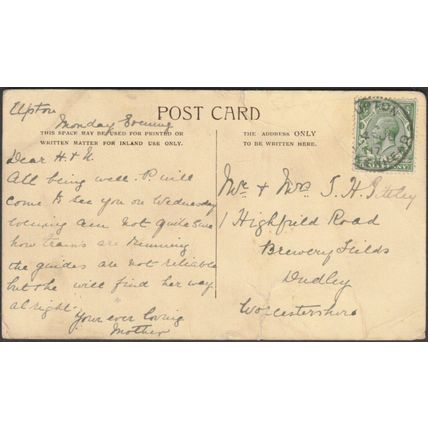 Upton
Monday Evening
POST CARD
THIS SPACE MAY BE USED FOR PRINTED OR
WRITTEN MATTER FOR INLAND USE ONLY.
Dear H. & N.
All being well. P. will
come to see you on Wednesday
evening am not quite sure
how trains are running
the guides are not reliable
but she will find her way
alright.
Your ever loving
Mother
THE ADDRESS ONLY
TO BE WRITTEN HERE.
Mr. & Mrs. T. H.
1 Highfield Road
Brewery Fields
Dudley
Worcestershire
UPTON